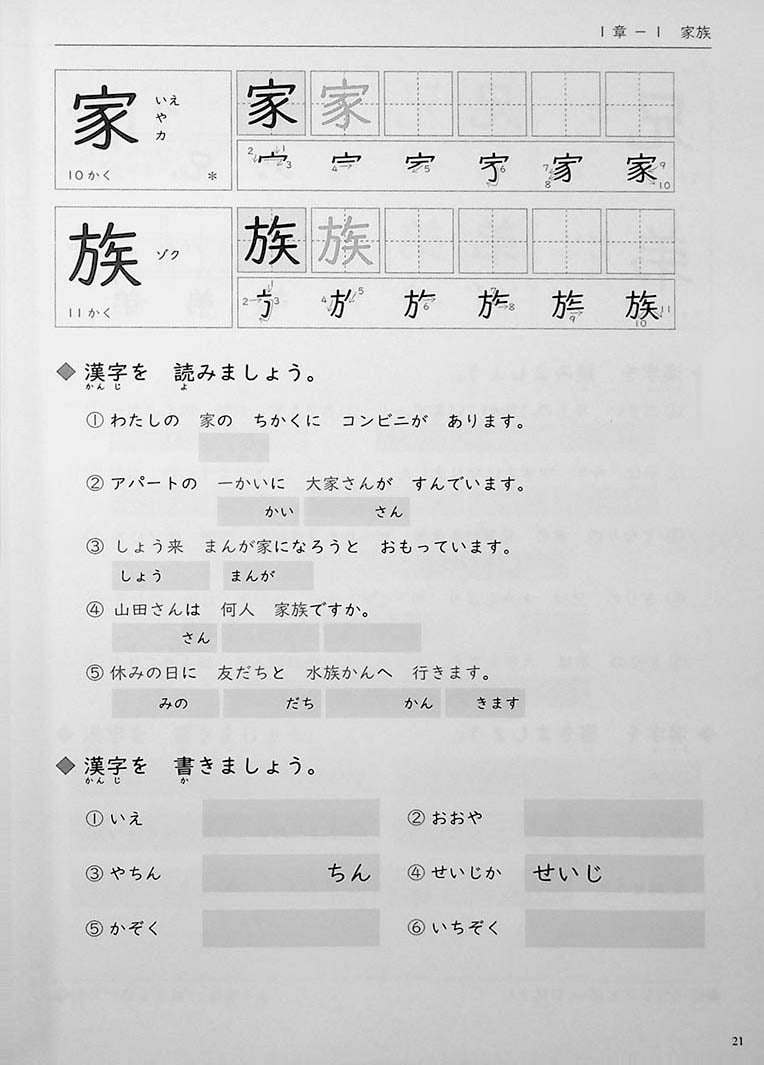 1章－1　家族
家　いえ
や
カ
10かく　*
家 家
2 1 3 4 5 6 7 8 9 10
族　ゾク
11かく
族 族
2 1 3 4 5 6 7 8 9 10 11
◆ 漢字を　読みましょう。
かん じ　よ
① わたしの　家の　ちかくに　コンビニが　あります。
② アパートの　一かいに　大家さんが　すんでいます。
かい　さん
③ しょう来　まんが家になろうと　おもっています。
しょう　まんが
④ 山田さんは　何人　家族ですか。
さん
⑤ 休みの日に　友だちと　水族かんへ　行きます。
みの　だち　かん　きます
◆ 漢字を　書きましょう。
かん じ　か
① いえ　② おおや
③ やちん　ちん　④ せいじか　せいじ
⑤ かぞく　⑥ いちぞく
21